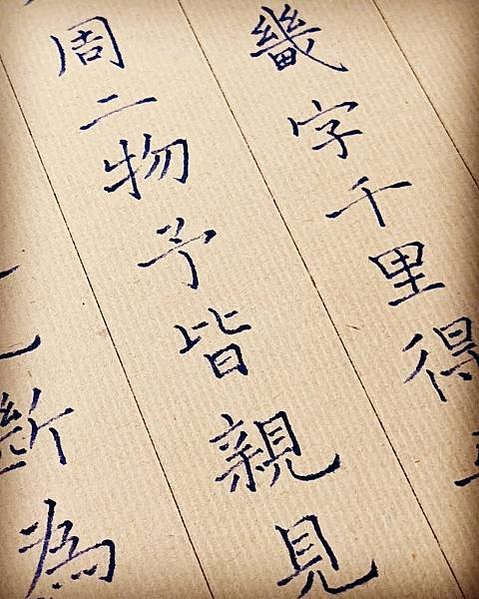 畿字千里得
周二物予皆親見
斷為